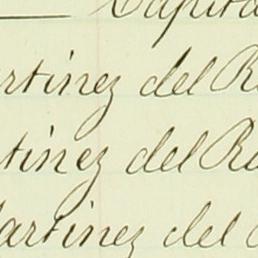 Capita
rtinez del R
tinez del Ra
artinez del